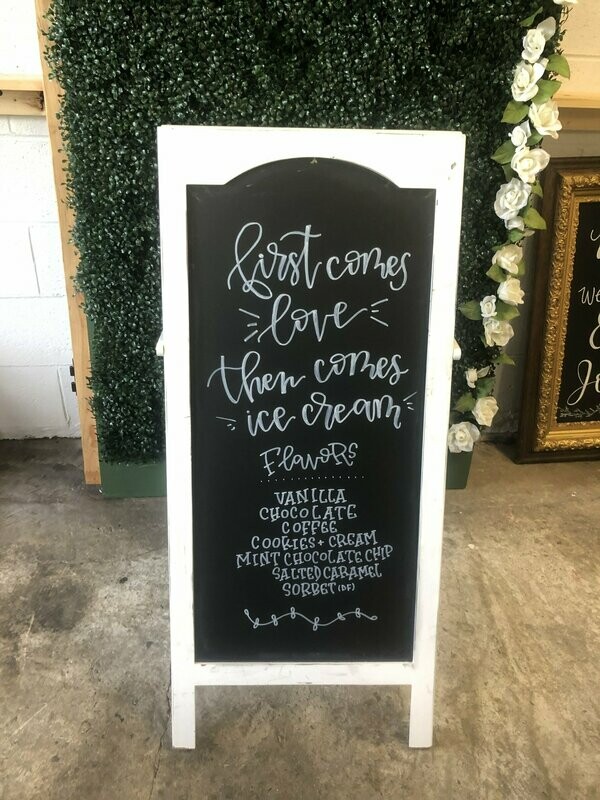 first comes
love
then comes
ice cream
Flavors
VANILLA
CHOCOLATE
COFFEE
COOKIES + CREAM
MINT CHOCOLATE CHIP
SALTED CARAMEL
SORBET (DF)